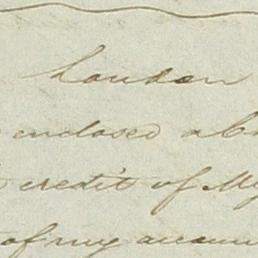 London
enclosed a
credit of My
of my accoun